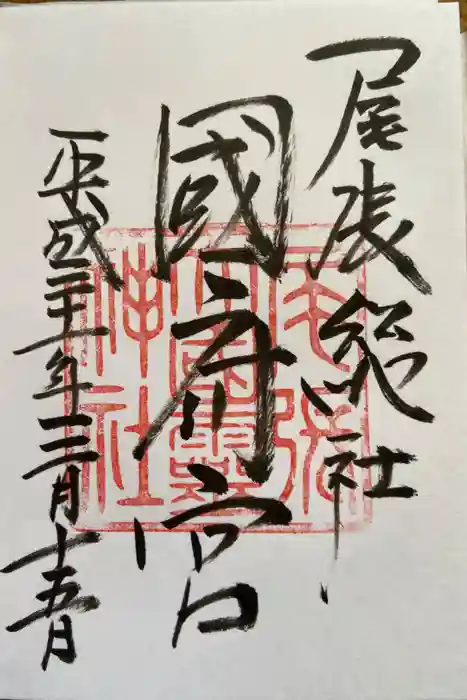 尾張総社
國府宮
平成二十一年三月十五日
尾張
大國霊
神社